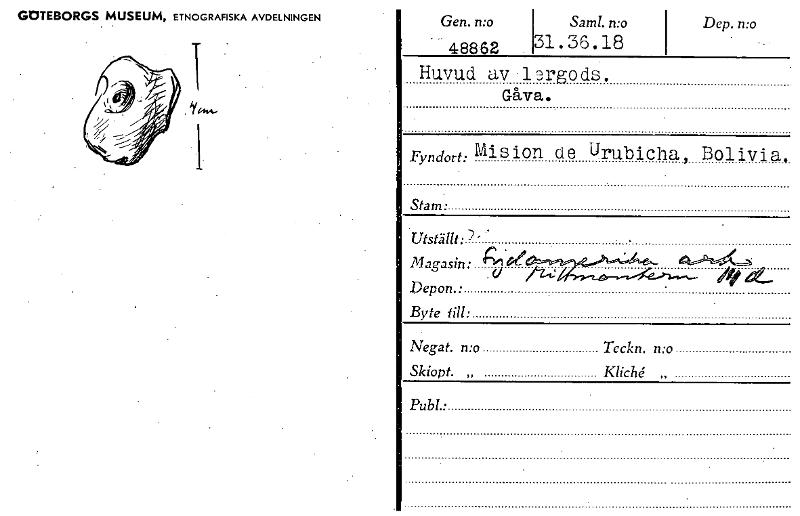 GÖTEBORGS MUSEUM, ETNOGRAFISKA AVDELNINGEN
4 cm
Gen. n:o Saml. n:o Dep. n:o
48862 31.36.18
Huvud av lergods.
Gåva.
Fyndort: Mision de Urubicha, Bolivia.
Stam:
Utställt:
Magasin: Sydamerika ark.
Mittmontern
Depon.:
Byte till:
Negat. n:o Teckn. n:o
Skiopt. „ Kliché „
Publ.: